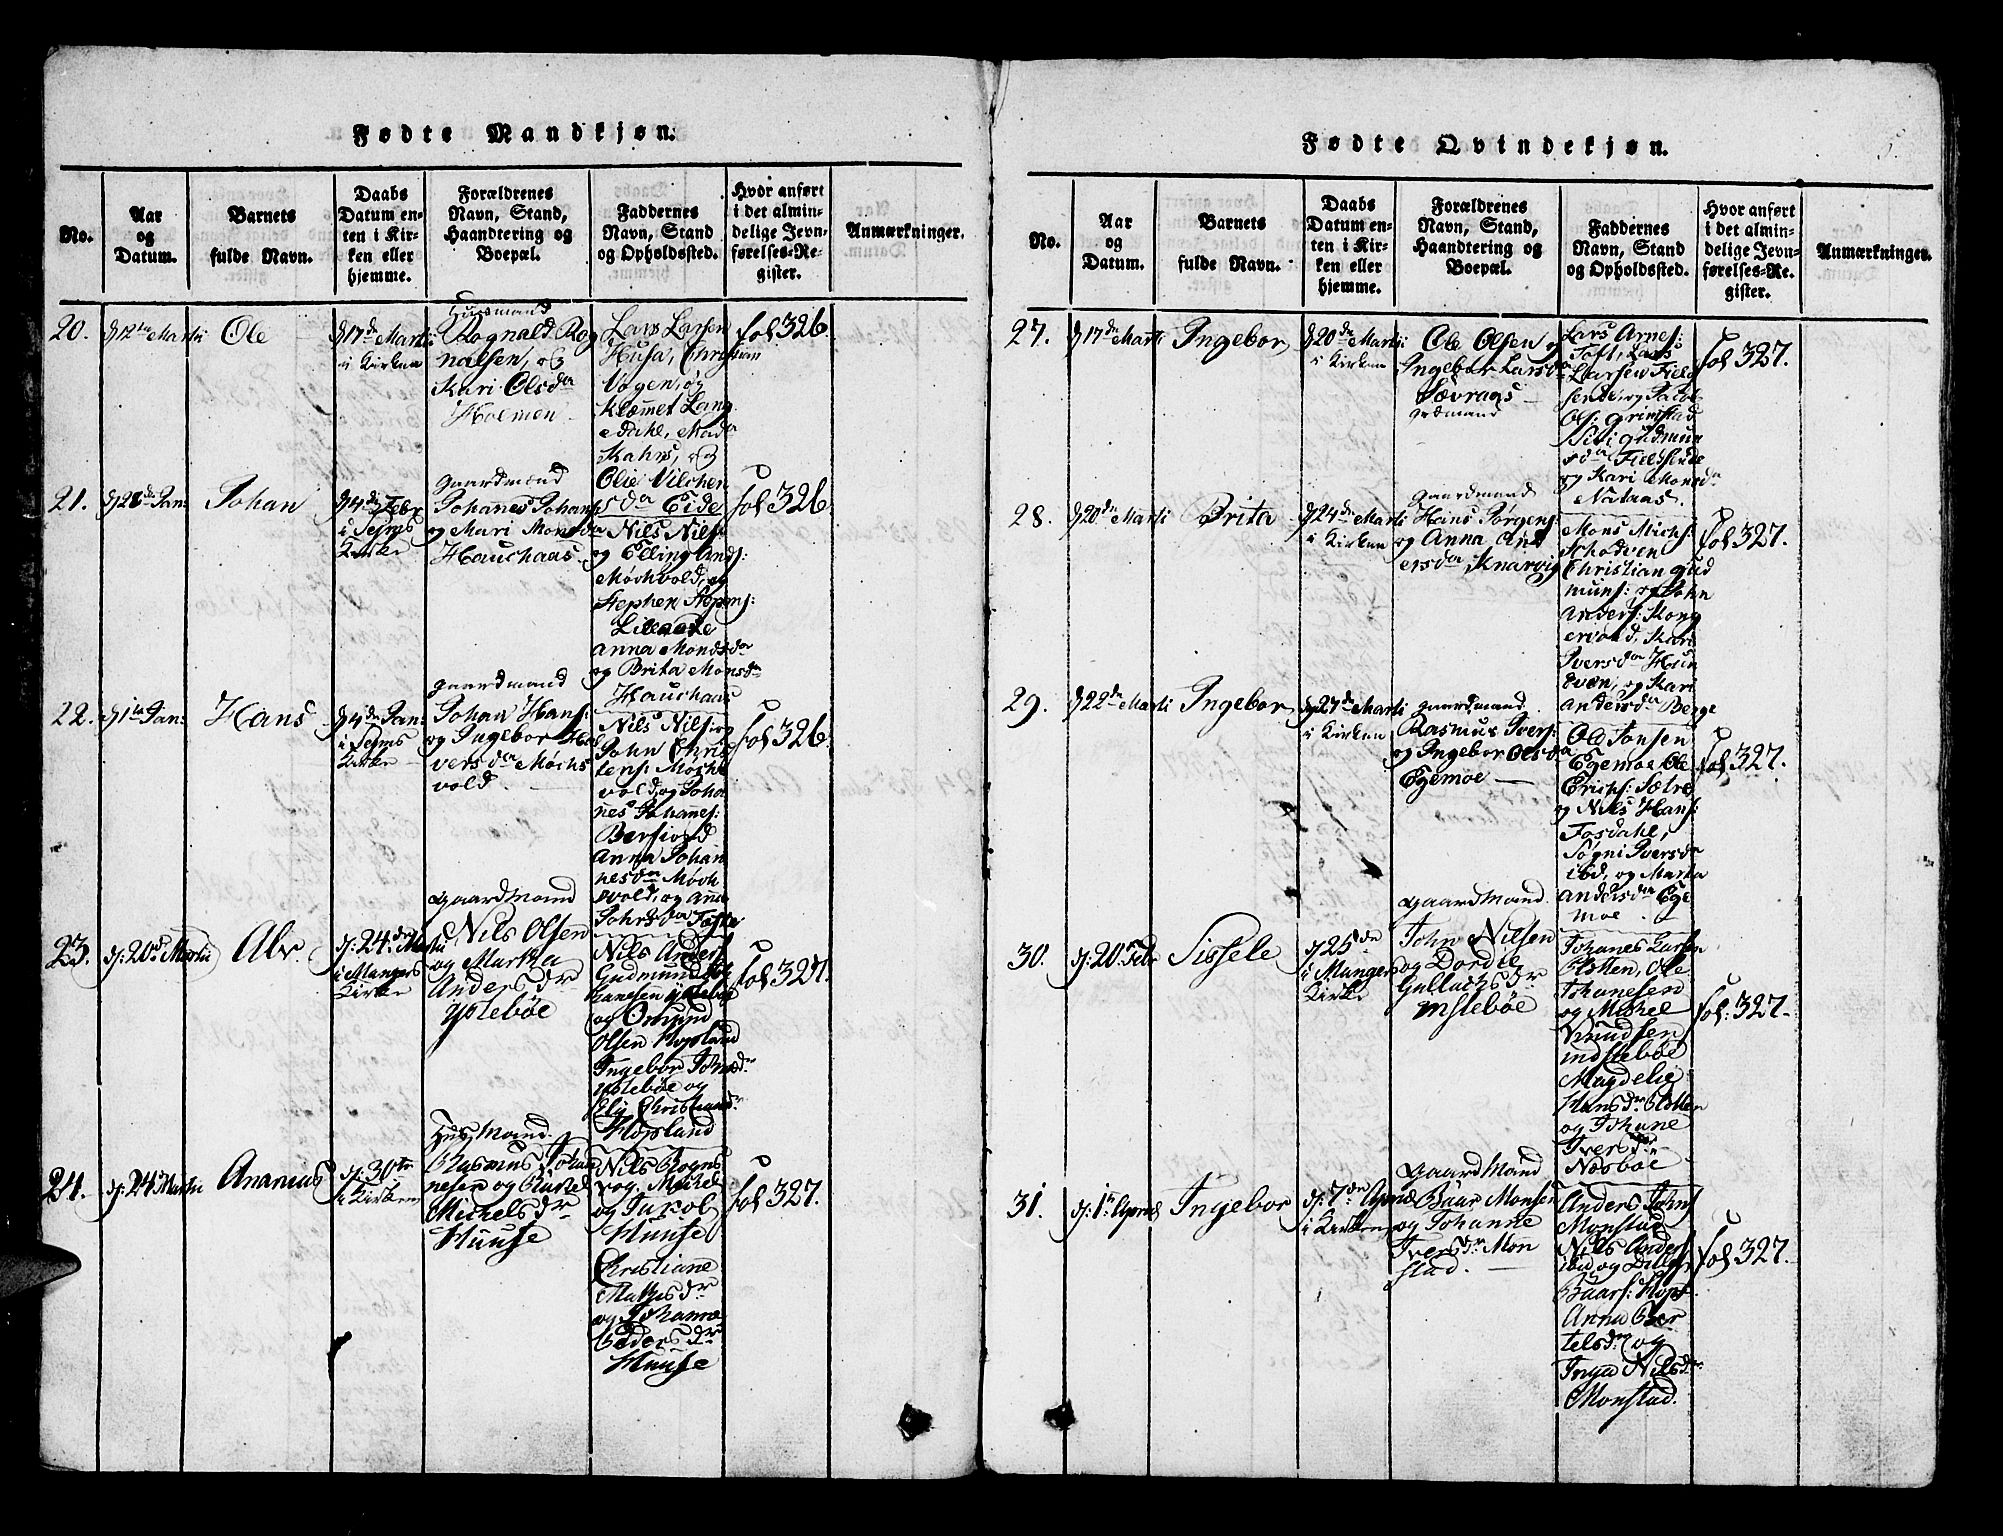 Fødte Mandkjøn.
No.
Aar
og
Datum.
Barnets
fulde Navn.
Daabs
Datum en-
ten i Kir-
ken eller
hjemme.
Forældrenes
Navn, Stand,
Haandtering og
Boepæl.
Faddernes
Navn, Stand
og Opholdssted.
Hvor anført
i det almin-
delige Jevn-
førelses-Re-
gister.
Anmærkninger.
20.
12te Marti
Ole
17de Marti
i Kirken
Huusmand
Rognald Rog
nalsen, og
Kari Olsda
Holmen
Lars Larsen
Husa, Christian
Vogen, og
Klæmet Lang
edahl, Mada
Kahrs, og
Olie Vilchen
sda Eide
fol 326
21.
Jan:
Johan
4de Febr
i Seims
Kirke
gaardmand
Johanes Johans:
og Mari Monsda
Hauchaas.
Nils Nils:
og Elling Ands:
Mochvold, og
Stephen Stepens:
Anna Mondsda
og Brita Monsda
Hauchaas
fol 326
22.
1te Jan:
Hans
4de Jan:
i Seims
Kirke
gaardmand
Johan Hans:
og Ingebor Hal
versda Mochs
vold.
Nils Nils: og
John Chris
tens: Moch
vold, og Joha
nes Johannes:
Anna Johan
nesda Moch
vold, og Anna
Johsda Tofte
fol 326.
23.
d: 20de Martii
Abr.
d: 24de Martii
i Mangers
Kirke
gaardMand
Nils Olsen
og Martha
Andersdr
Ystebøe
Nils Anders
og Omund
Olsen Hopland
Ingebor
Ystebøe og
Eli
Hopland
fol 327.
24.
d: 24 Martii
Ananias
d: 30te
i Kirken
HusMand
Rasmus Johan
nesen og Rachel
Michelsdr
Huuse
Nils Rogns
og Michel
og Jacob
Huuse
Christiane
Mathisdr
og Johanne
Pedersdr
Huuse
fol 327.
Fødte Qvindekjøn.
5.
No.
Aar
og
Datum.
Barnets
fulde Navn.
Daabs
Datum en-
ten i Kir-
ken eller
hjemme.
Forældrenes
Navn, Stand,
Haandtering og
Boepæl.
Faddernes
Navn, Stand
og Opholdssted.
Hvor anført
i det almin-
delige Jevn-
førelses-Re-
gister.
Anmærkninger.
27.
17de Marti
Ingebor
20de Marti
i Kirken
Ole Olsen og
Ingebor Larsda
Sævraas
Lars Arnes:
Toft, Lars
Larsen Field
sende, og Jacob
Ols: Grimstad
Siri Gudmun
sda Fieldsende
og Kari Monsda
Nataas.
fol 327.
28.
20de Marti
Brita
24de Marti
i Kirken
gaardmand
Heins Jørgens:
og Anna And
ersda, Knarvig
Mons Michs:
Schodven
Christian Gud
muns: og John
Anders: Kong
ervold, Kari
Iversda Hun
dven, og Kari
Andersda Berge
fol 327.
29.
22de Marti
Ingebor
27de Marti
i Kirken
gaardmand
Rasmus Ivers:
og Ingebor Olsda
Egemoe
Ole Jonsen
Egemoe, Ole
Erichs: Sætre
og Nils Hans:
Fosdahl,
Søgni Iversda
ibd, og Marta
Andersda Ege
moe.
fol 327.
30.
d: 20 Febr
Sissele
d 25de
i Mangers
Kirke
gaardMand
John Nilsen
og Dordie
Gullachsdr
Johanes Larsen
Ole
Johanesen
og Michel
Knudsen
indstebøe
Magdelie
Hansdr
og Johane
Iversdr
Næsbøe
fol: 327.
31.
d: 1te Apriil
Ingebor
d: 7de April
i Kirken
gaardMand
Baar Monsen
og Johanne
Iversdr Mon
stad.
Anders Johns
Monstad
Nils Anders
ibid og
Baars: Hops
Anna Ber
telsdr og
Inga Nilsdr
Monstad.
fol 327.